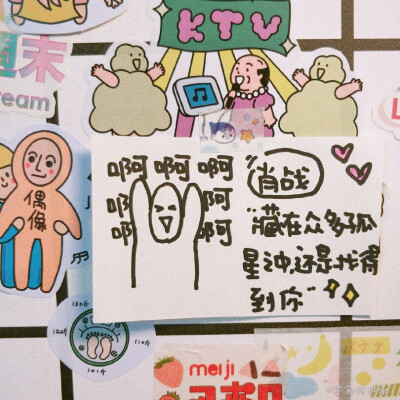 KTV
週末
ream
偶像
啊 啊 啊
啊 啊
啊 啊
"肖战"
"藏在众多孤
星之中,还是找得
到你"
120斤
110斤
101斤
meiji